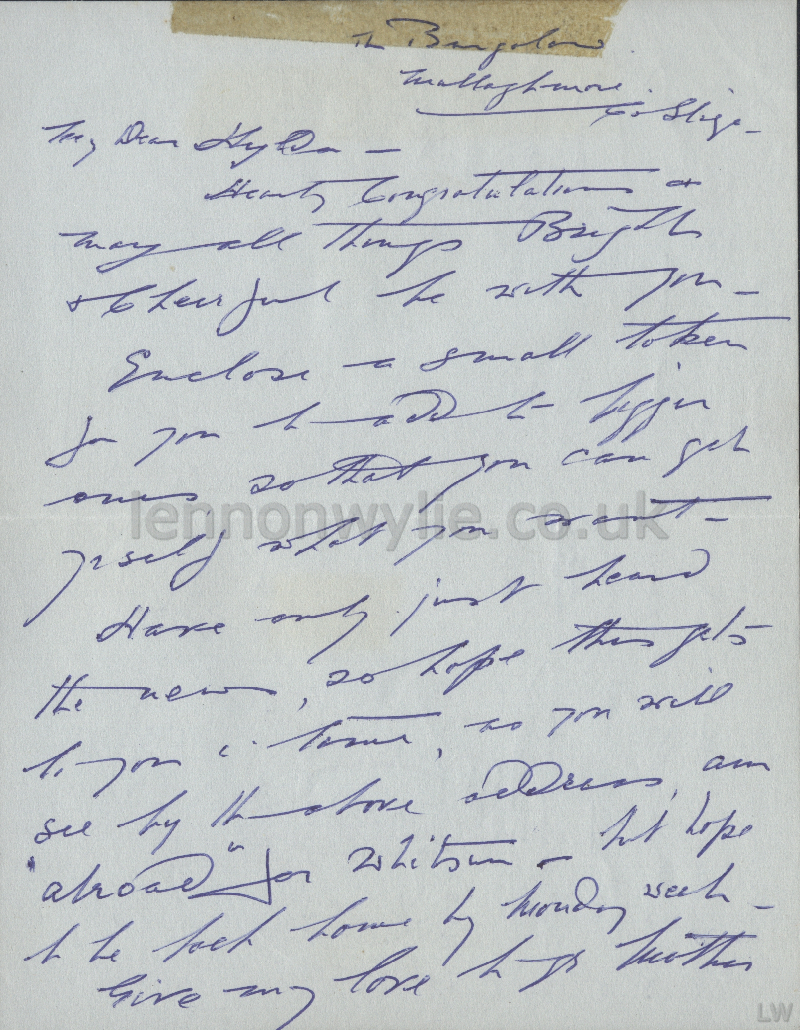 The Bungalow
Mullaghmore.
Co Sligo -
My Dear Hylda -
Hearty Congratulations &
may all things Bright
& Cheerful be with you -
Enclose a small token
for you to add to bigger
ones, so that you can get
yrself what you want -
Have only just heard
the news, so hope this gets
to you in time, as you will
see by the above address, am
"abroad" for Whitsun - but hope
to be back home by Monday week -
Give my love to yr Mother
lennonwylie.co.uk
LW